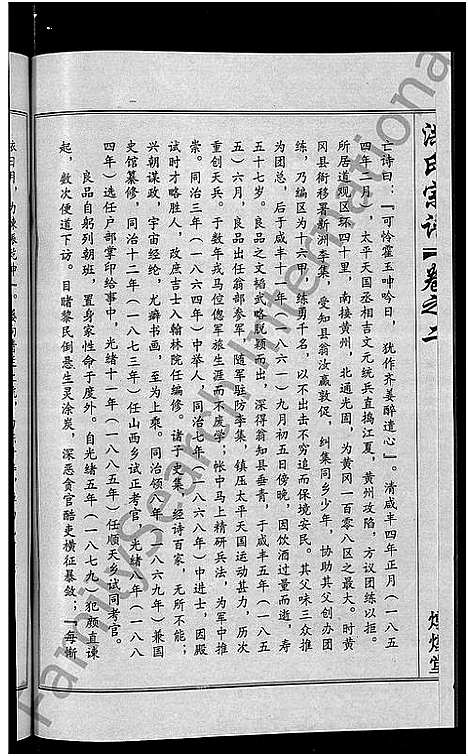 洪氏宗谱 卷之二
亡诗曰：「可怜霍玉呻吟日，犹作齐姜醉遣心」。清咸丰四年正月（一八五
四年二月），太平天国丞相吉文元统兵直捣江夏，黄州攻陷，方议团练以拒。
所居道观区环四十里，南接黄州，北通光固，为黄冈一百零八区之最大。时黄
冈县衙移署新洲李集，受知县翁汝瀛敦促，纠集同乡少年，协助其父创办团
练，乃编区为十六甲，练勇千名，以不出击不穷追而保境安民。其父味三众推
为团总，后于咸丰十一年（一八六一）九月初五日傍晚，因饮酒过量而逝，寿
五十七岁。良品之文韬武略脱颖而出，深得翁知县垂青，于咸丰五年（一八五
五）六月，良品出任翁部参军，随军驻防李集，镇压太平天国运动甚力，历次
重创天兵。于数年戎马倥偬军旅生涯而不废学；帐中马上精研兵法，为军中推
崇。同治三年（一八六四年）中举人，同治七年（一八六八年）中进士，因殿
试时才略胜人，改庶吉士入翰林院任编修。诸子史集，经诗百家，无所不能；
兴朝谋政，宇宙经纶，尤癖书画，至为上乘。同治领八年（一八六九年）兼国
史馆纂修，同治十二年（一八七三年）任山西乡试正考官，光绪八年（一八八
四年）选任户部掌印给事中，光绪十一年（一八八五年）任顺天乡试同考官。
良品自躬列朝班，置身家性命于度外。自光绪五年（一八七九）犯颜直谏
起，数次便道下访。目睹黎民倒悬生灵涂炭，深恶贪官酷吏横征暴敛；「每断
FamilySearch International